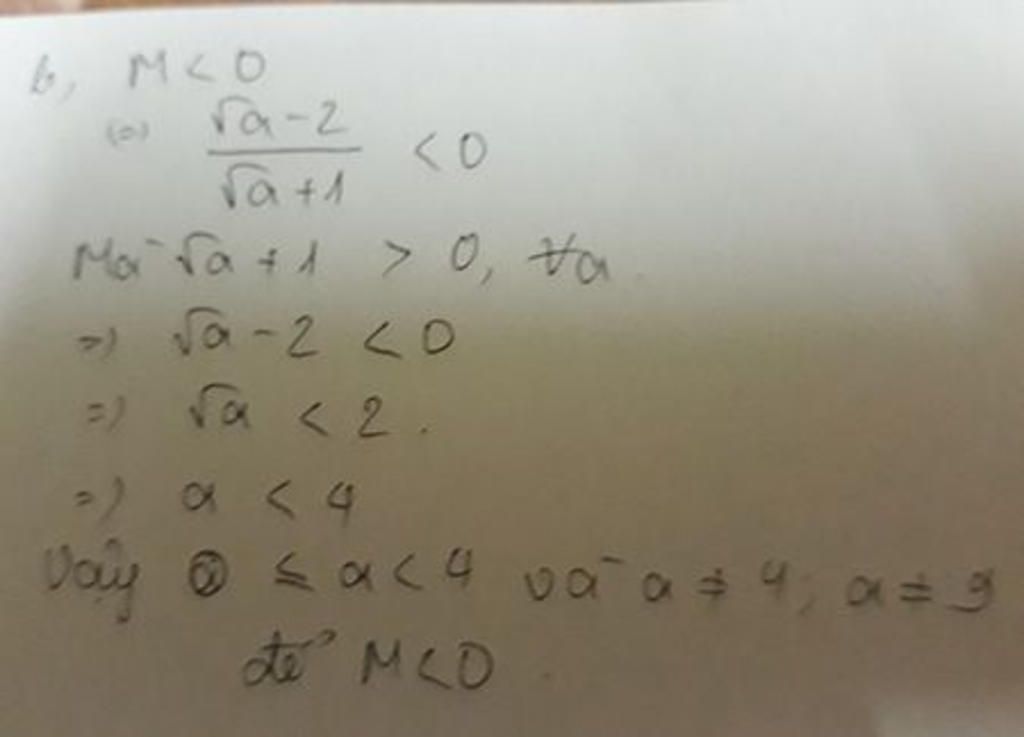 b, M < 0
(=) √a - 2 / √a + 1 < 0
Mà √a + 1 > 0, ∀a
=) √a - 2 < 0
=) √a < 2.
=) a < 4
Vậy 0 ≤ a < 4 và a ≠ 4; a ≠ 9
để M < 0.